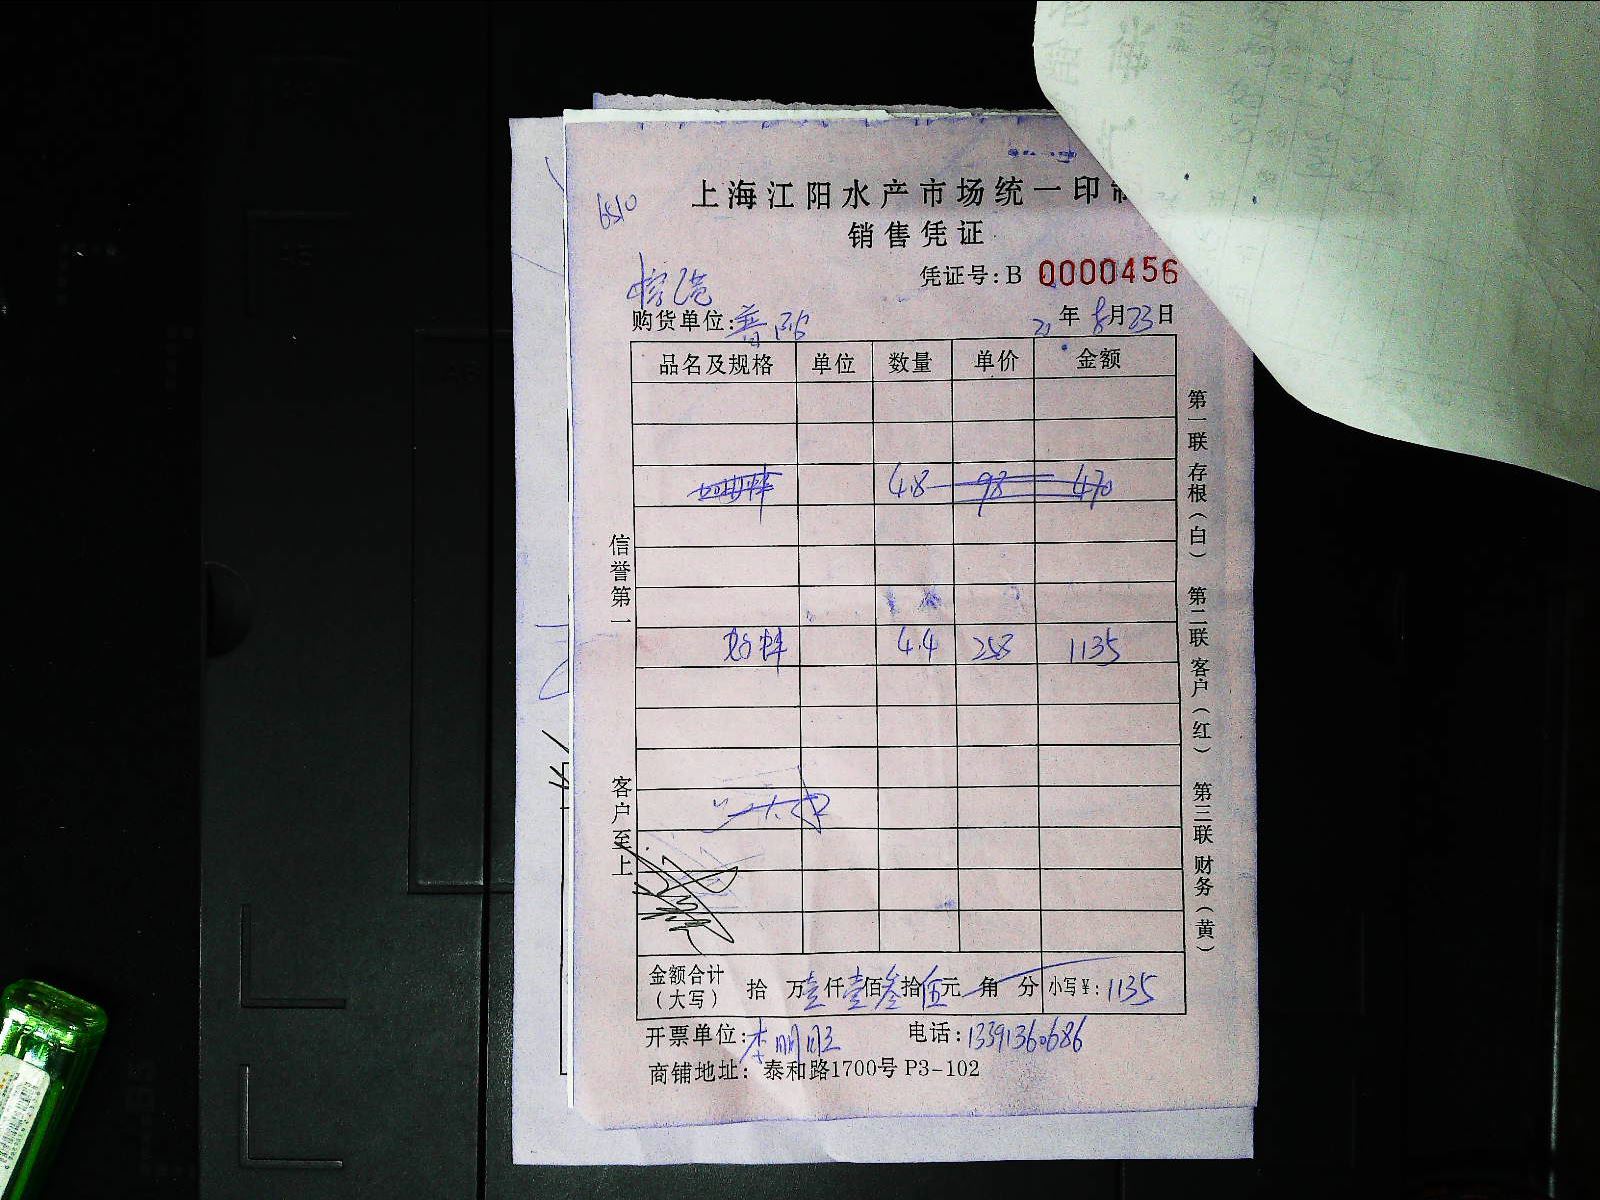 上海江阳水产市场统一印制
销售凭证
6510
凭证号:B 0000456
购货单位:普陀
21年8月23日
品名及规格 单位 数量 单价 金额
4.8 98 470
4.4 258 1135
信誉第一
客户至上
第一联存根(白) 第二联客户(红) 第三联财务(黄)
金额合计(大写) 拾 万壹仟壹佰叁拾伍元 角 分 小写¥:1135
开票单位:李明旺 电话:13391360686
商铺地址:泰和路1700号 P3-102